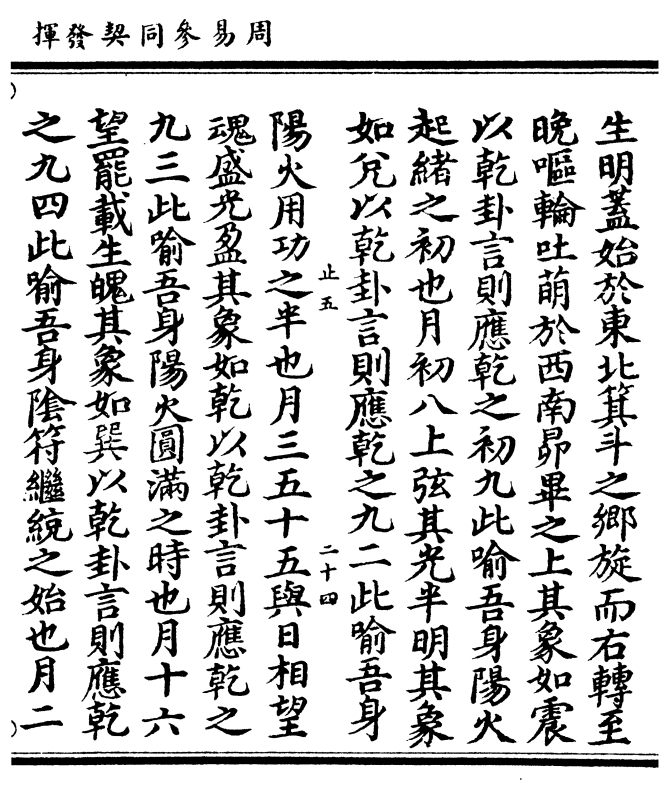 周易參同契發揮
生明蓋始於東北箕斗之鄉旋而右轉至
晚嘔輪吐萌於西南昴畢之上其象如震
以乾卦言則應乾之初九此喻吾身陽火
起緒之初也月初八上弦其光半明其象
如兌以乾卦言則應乾之九二此喻吾身
止五
二十四
陽火用功之半也月三五十五與日相望
魂盛光盈其象如乾以乾卦言則應乾之
九三此喻吾身陽火圓滿之時也月十六
望罷載生魄其象如巽以乾卦言則應乾
之九四此喻吾身陰符繼統之始也月二